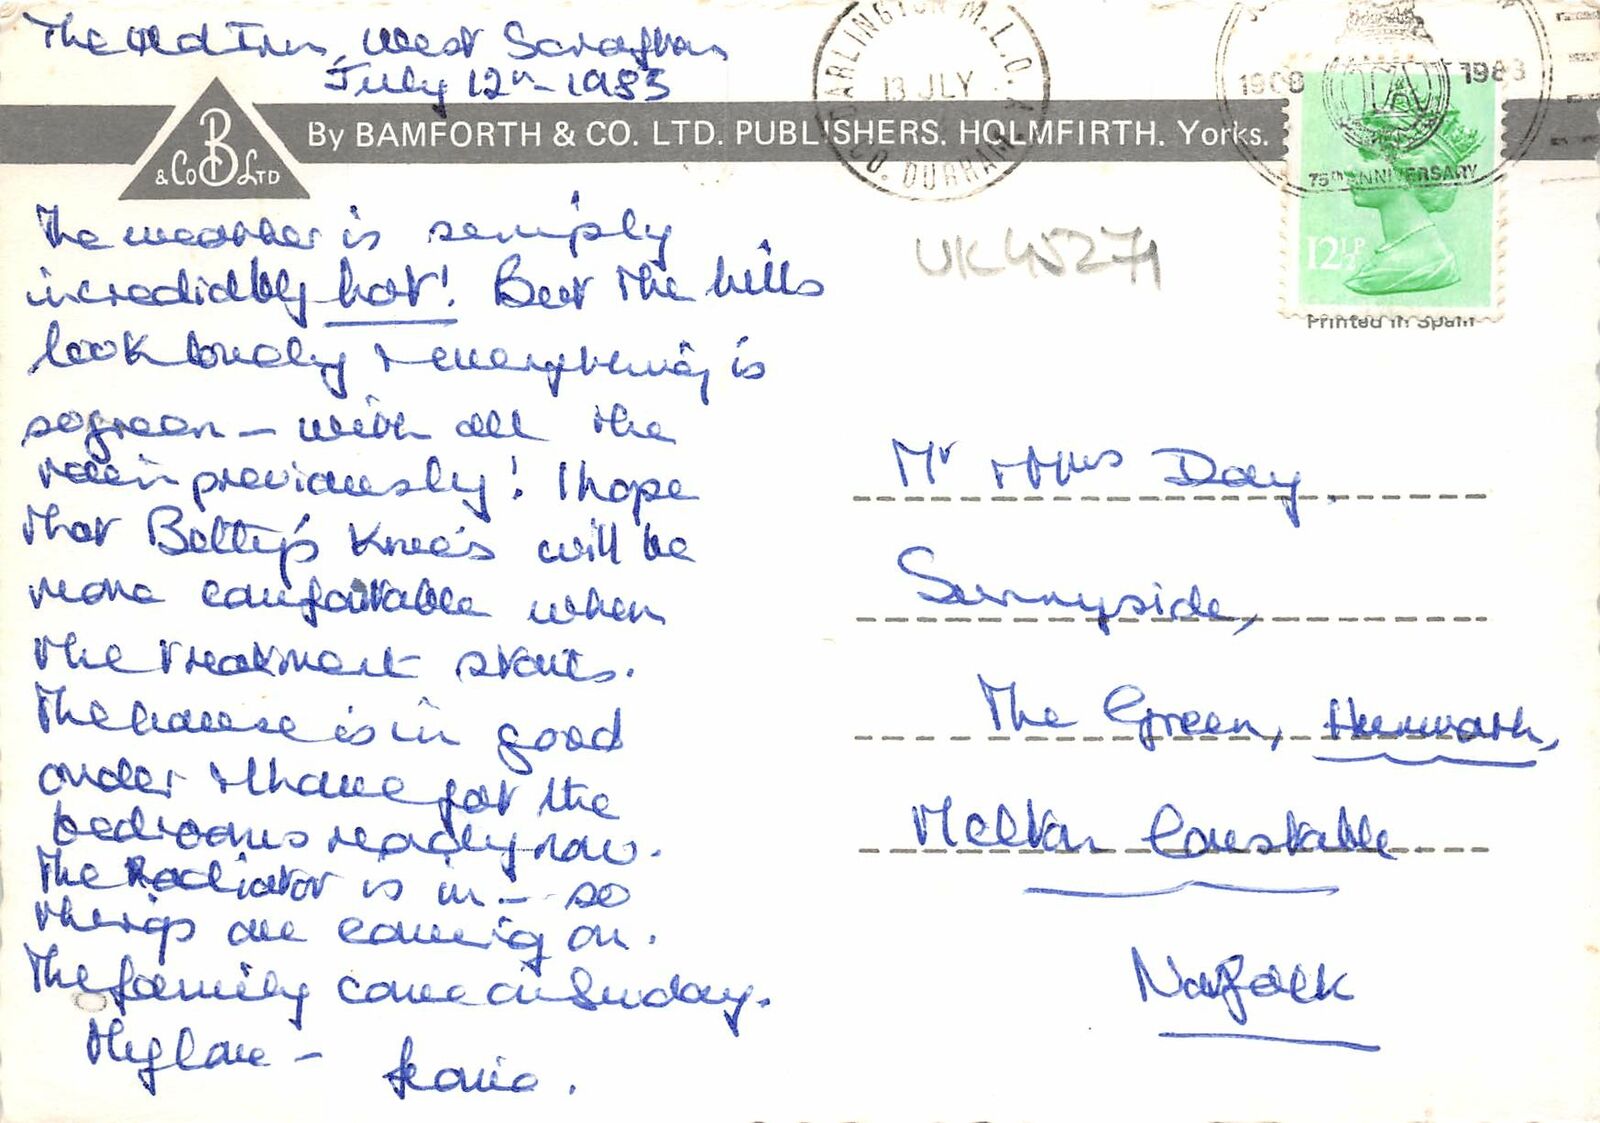 The Old Inn, West Scrafton
July 12th 1983
B
& Co Ltd
By BAMFORTH & CO. LTD. PUBLISHERS. HOLMFIRTH. Yorks.
DARLINGTON M.L.O. A
13 JLY
CO. DURHAM
1908 1983
75th ANNIVERSARY
12½P
Printed in Spain
UK45271
The weather is simply
incredibly hot! But the hills
look lovely & everything is
so green – with all the
rain previously! I hope
that Betty's knees will be
more comfortable when
the treatment starts.
The house is in good
order & I have got the
bedrooms ready now.
The Radiator is in – so
things are coming on.
The family come on Sunday.
My love –
Mr & Mrs Day.
Sunnyside,
The Green,
Melton Constable
Norfolk